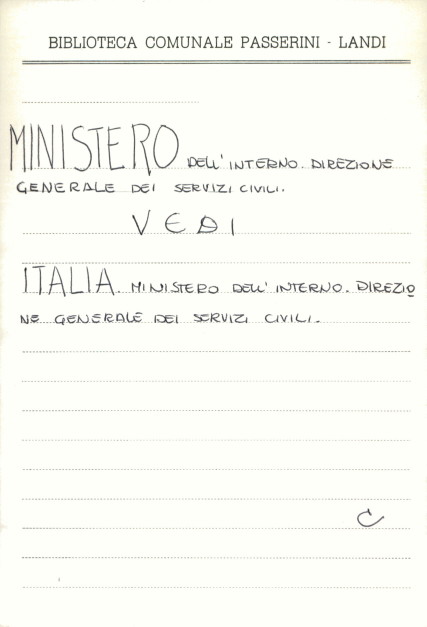 BIBLIOTECA COMUNALE PASSERINI - LANDI
MINISTERO DELL'INTERNO. DIREZIONE
GENERALE DEI SERVIZI CIVILI.
VEDI
ITALIA. MINISTERO DELL'INTERNO. DIREZIO
NE GENERALE DEI SERVIZI CIVILI.
C